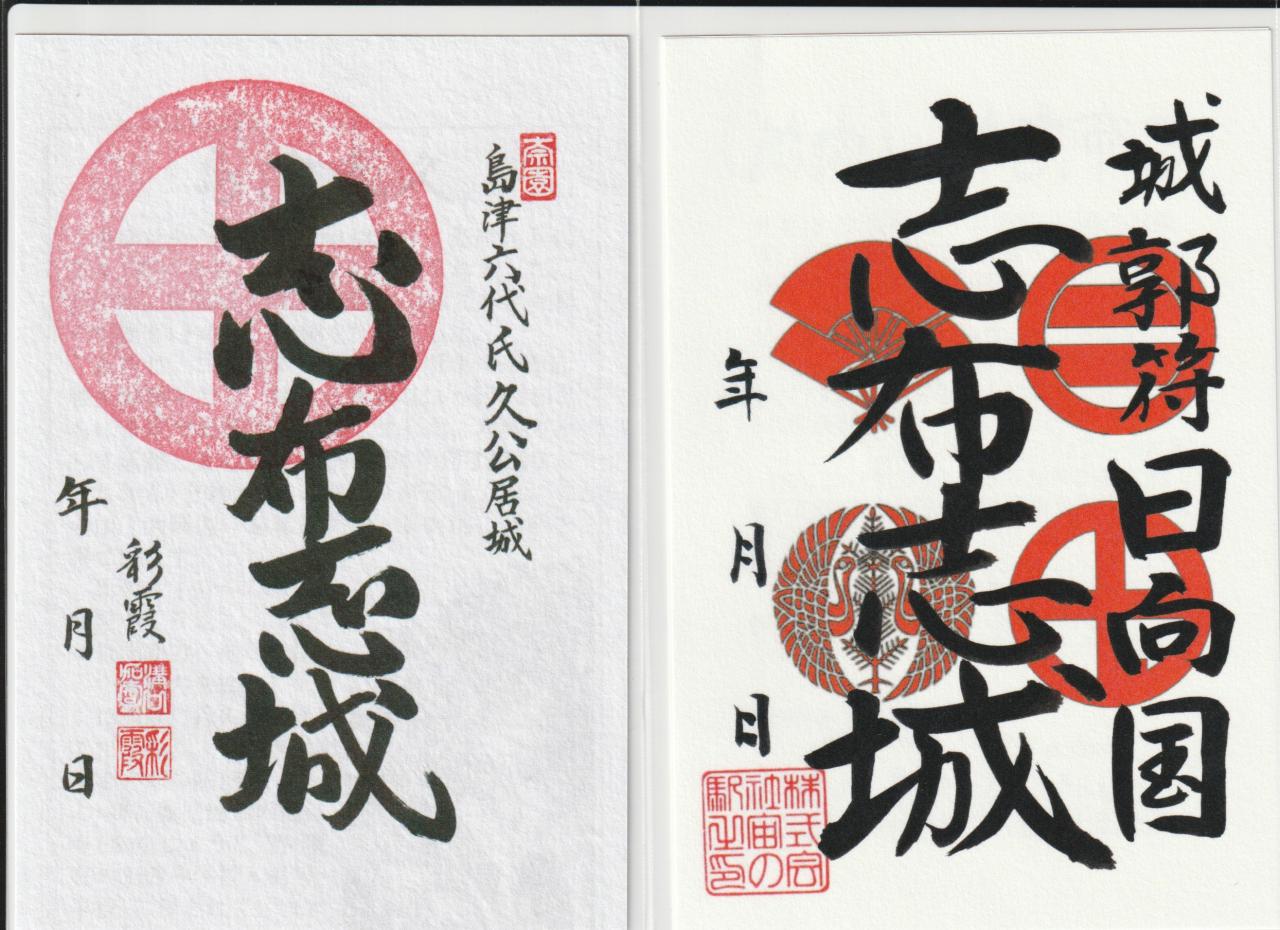 島津六代氏久公居城
志布志城
彩霞
彩霞
年 月 日
城郭符 日向国
志布志城
年 月 日
株式会
社宙の
駅之印